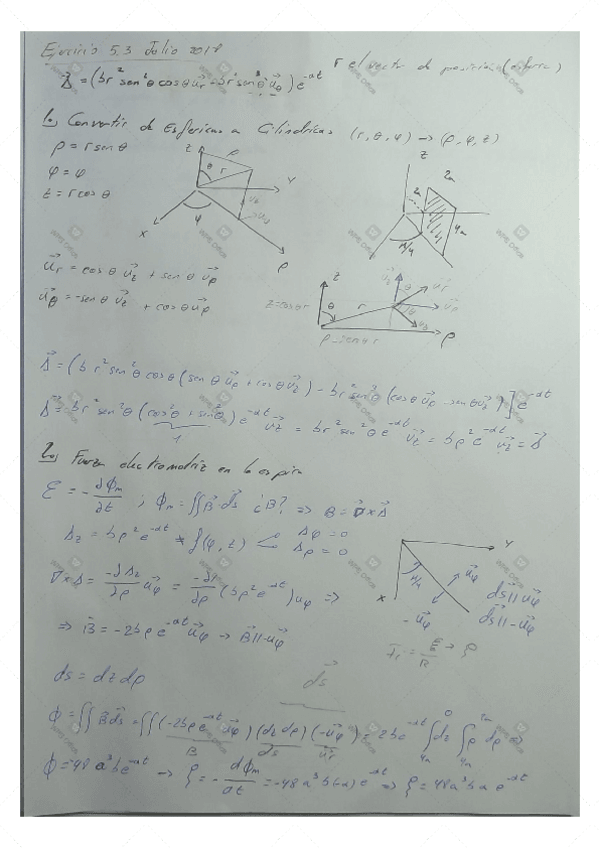 Ejercicio 5.3 Julio 2018
A⃗ = (br² sen²θ cosθ u⃗r - br² sen³θ u⃗θ) e^-αt
r el vector de posición (esfera)
1. Convertir de Esfericas a Cilíndricas (r, θ, φ) → (ρ, φ, z)
ρ = r sen θ
φ = φ
z = r cos θ
z
ρ
θ
r
Y
φ
X
ρ
z
2a
2a
4a
π/4
u⃗r = cos θ u⃗z + sen θ u⃗ρ
u⃗θ = -sen θ u⃗z + cos θ u⃗ρ
z
z = cos θ r
θ
r
u⃗z
θ
u⃗r
u⃗ρ
θ
u⃗θ
ρ = sen θ r
ρ
A⃗ = (br² sen²θ cosθ (sen θ u⃗ρ + cos θ u⃗z) - br² sen³θ (cosθ u⃗ρ - senθ u⃗z)] e^-αt
A⃗ = br² sen²θ (cos²θ + sen²θ) e^-αt u⃗z = br² sen²θ e^-αt u⃗z = bρ² e^-αt u⃗z = A⃗
1
2. Fuerza electromotriz en la espira
ε = - ∂Φm/∂t ; Φm = ∬ B⃗·d⃗s ¿B? ⇒ B = ∇⃗ x A⃗
Az = bρ² e^-αt ≠ f(φ, z) < Aφ = 0
Aρ = 0
∇ x A = -∂Az/∂ρ u⃗φ = -∂/∂ρ (bρ² e^-αt) uφ ⇒
⇒ B⃗ = -2bρ e^-αt u⃗φ → B⃗ || -u⃗φ
Y
X
π/4
u⃗φ
-u⃗φ
d⃗s || u⃗φ
d⃗s || -u⃗φ
ds = dz dρ
d⃗s
Φ = ∬ B⃗ d⃗s = ∬ (-2bρ e^-αt u⃗φ) (dz dρ) (-u⃗φ) = 2be^-αt ∫ dz ∫ ρ dρ
B
ds
Φ = 48 a³ b e^-αt → ξ = - dΦm/dt = -48 a³ b(-α) e^-αt ⇒ ξ = 48a³ b α e^-αt